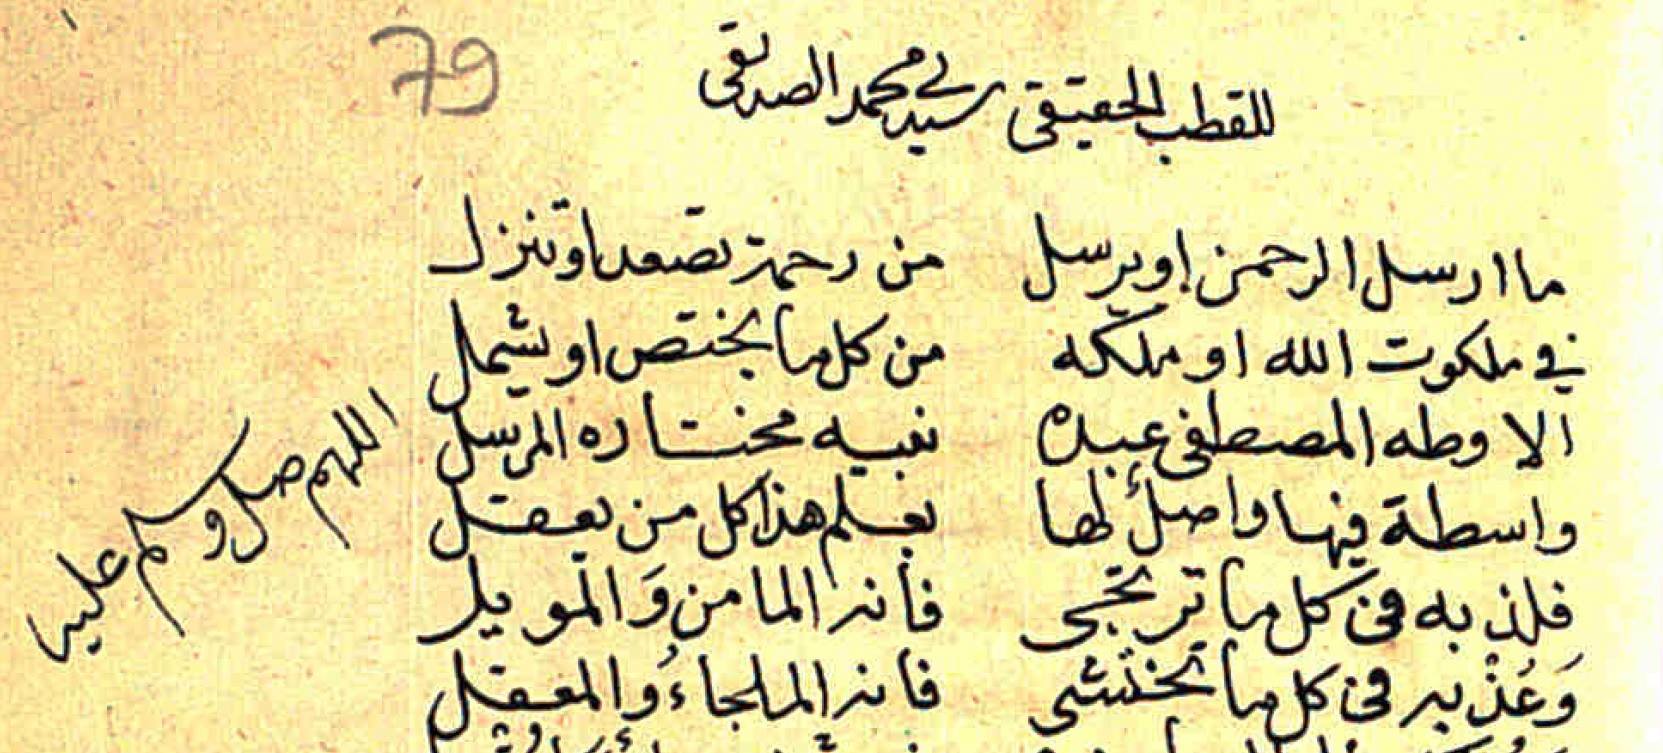 79
للقطب الحقيقي سيدي محمد الصديقي
ما ارسل الرحمن او يرسل من رحمة تصعد او تنزل
في ملكوت الله او ملكه من كل ما يختص او يشمل
الا وطه المصطفى عبده نبيه مختاره المرسل
واسطة فيها واصل لها يعلم هذا كل من يعقل
فلذ به في كل ما ترتجى فانه المامن وَالمويل
وَعُذْ به في كل ما تختشى فانه الملجاءُ والمعقل
اللهم صل وسلم عليه